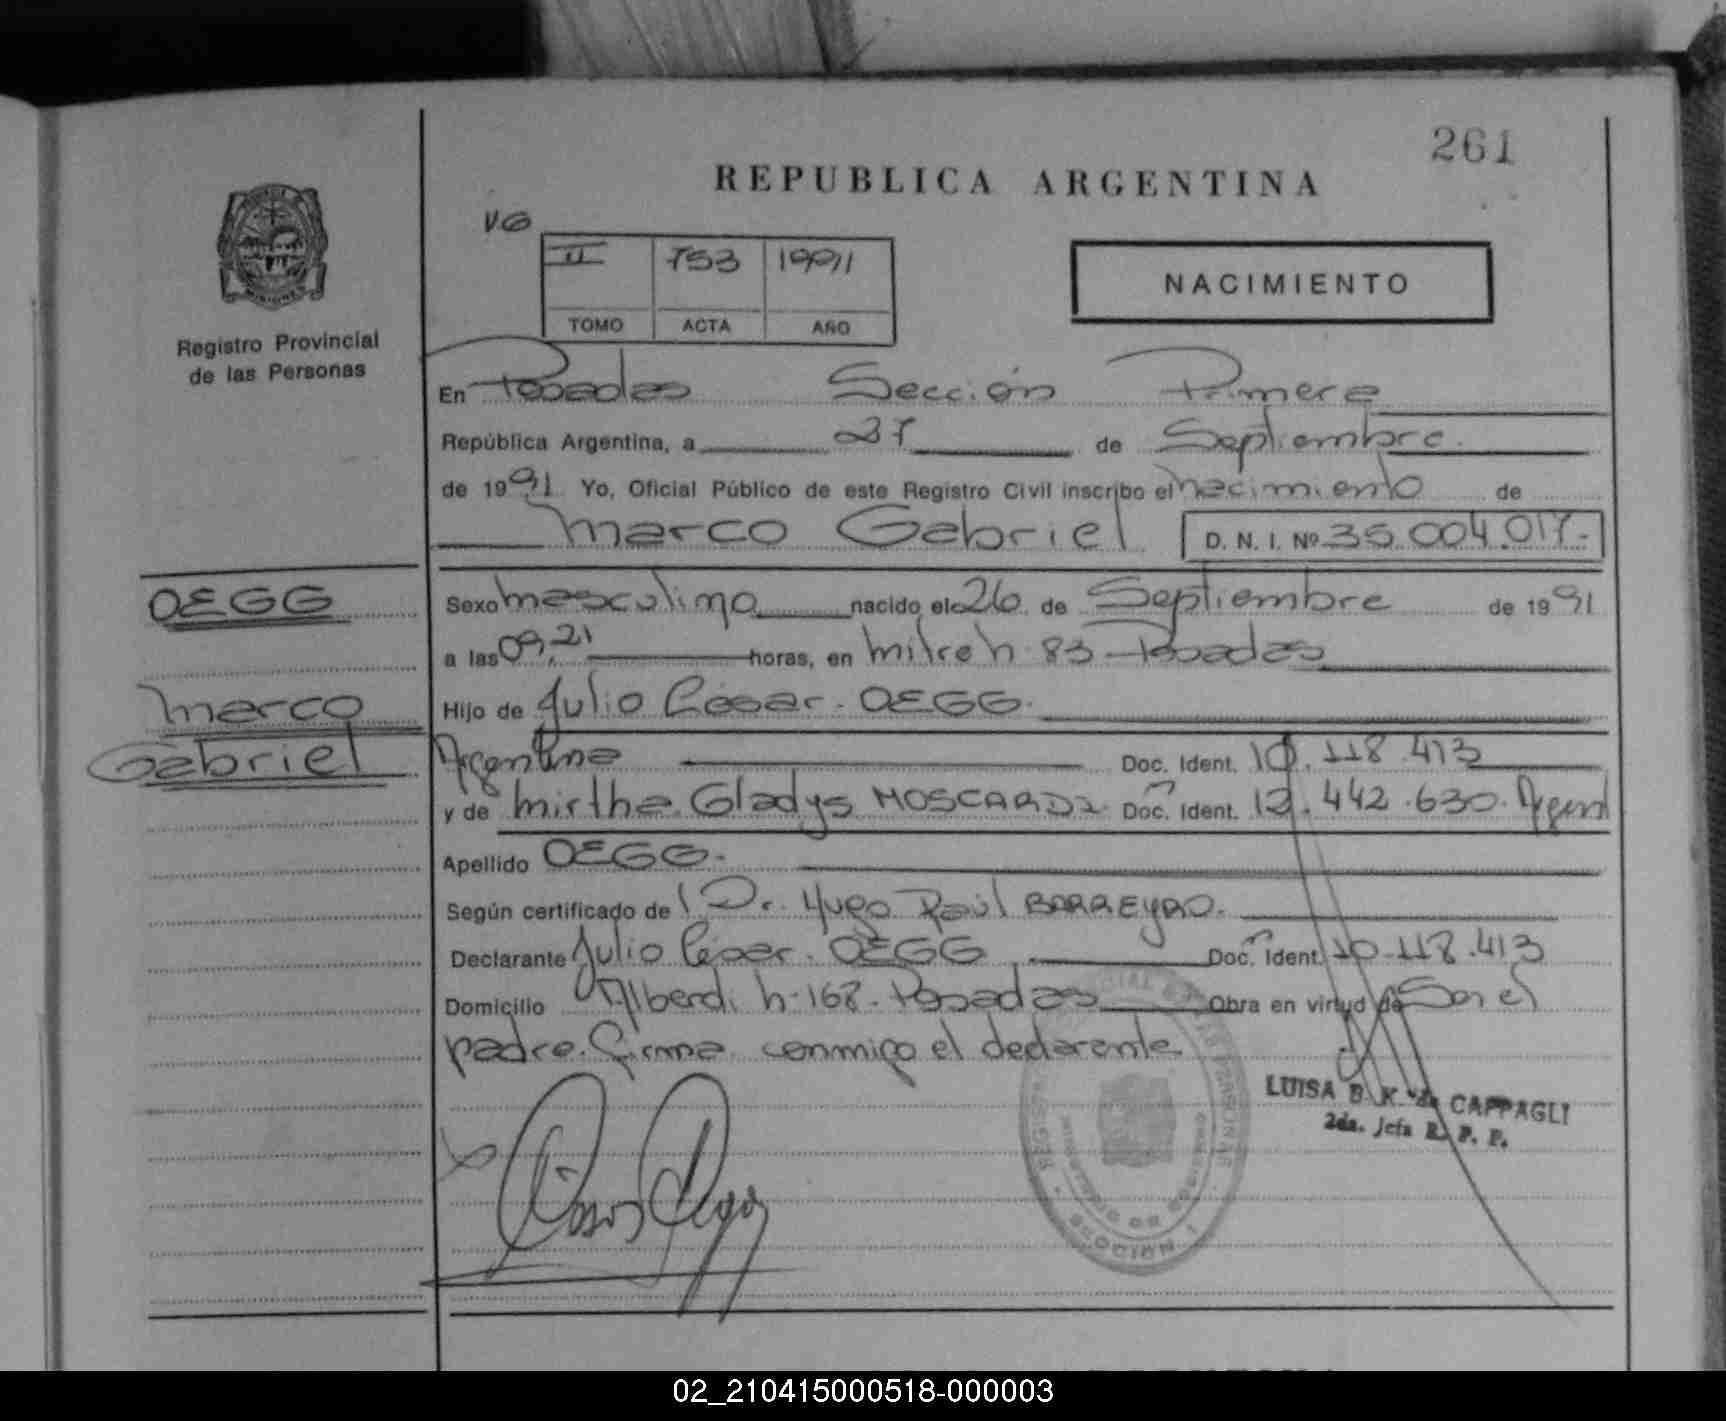 261
REPUBLICA ARGENTINA
VG
II 753 1991
TOMO ACTA AÑO
NACIMIENTO
MISIONES
Registro Provincial
de las Personas
En Posadas Sección Primera
República Argentina, a 27 de Septiembre.
de 1991 Yo, Oficial Público de este Registro Civil inscribo el nacimiento de
Marco Gabriel D. N. I. Nº 36.004.017.-
OEGG
Sexo masculino nacido el 26 de Septiembre de 1991
a las 09,21 horas, en mitre n. 83 - Posadas
Marco
Gabriel
Hijo de Julio César. OEGG.
Argentino Doc. Ident. 10.118.413
y de Mirtha Gladys MOSCARDI Doc. Ident. 12.442.630. Argent
Apellido OEGG.
Según certificado del Dr. Hugo Raúl BARREYRO.
Declarante Julio César. OEGG Doc. Ident. 10.118.413
Domicilio Alberdi n. 168. Posadas Obra en virtud de Ser el
padre. Firma conmigo el declarante
LUISA B. K. de CAPPAGLI
2da. Jefa R. P. P.
SECCION 1
02_210415000518-000003